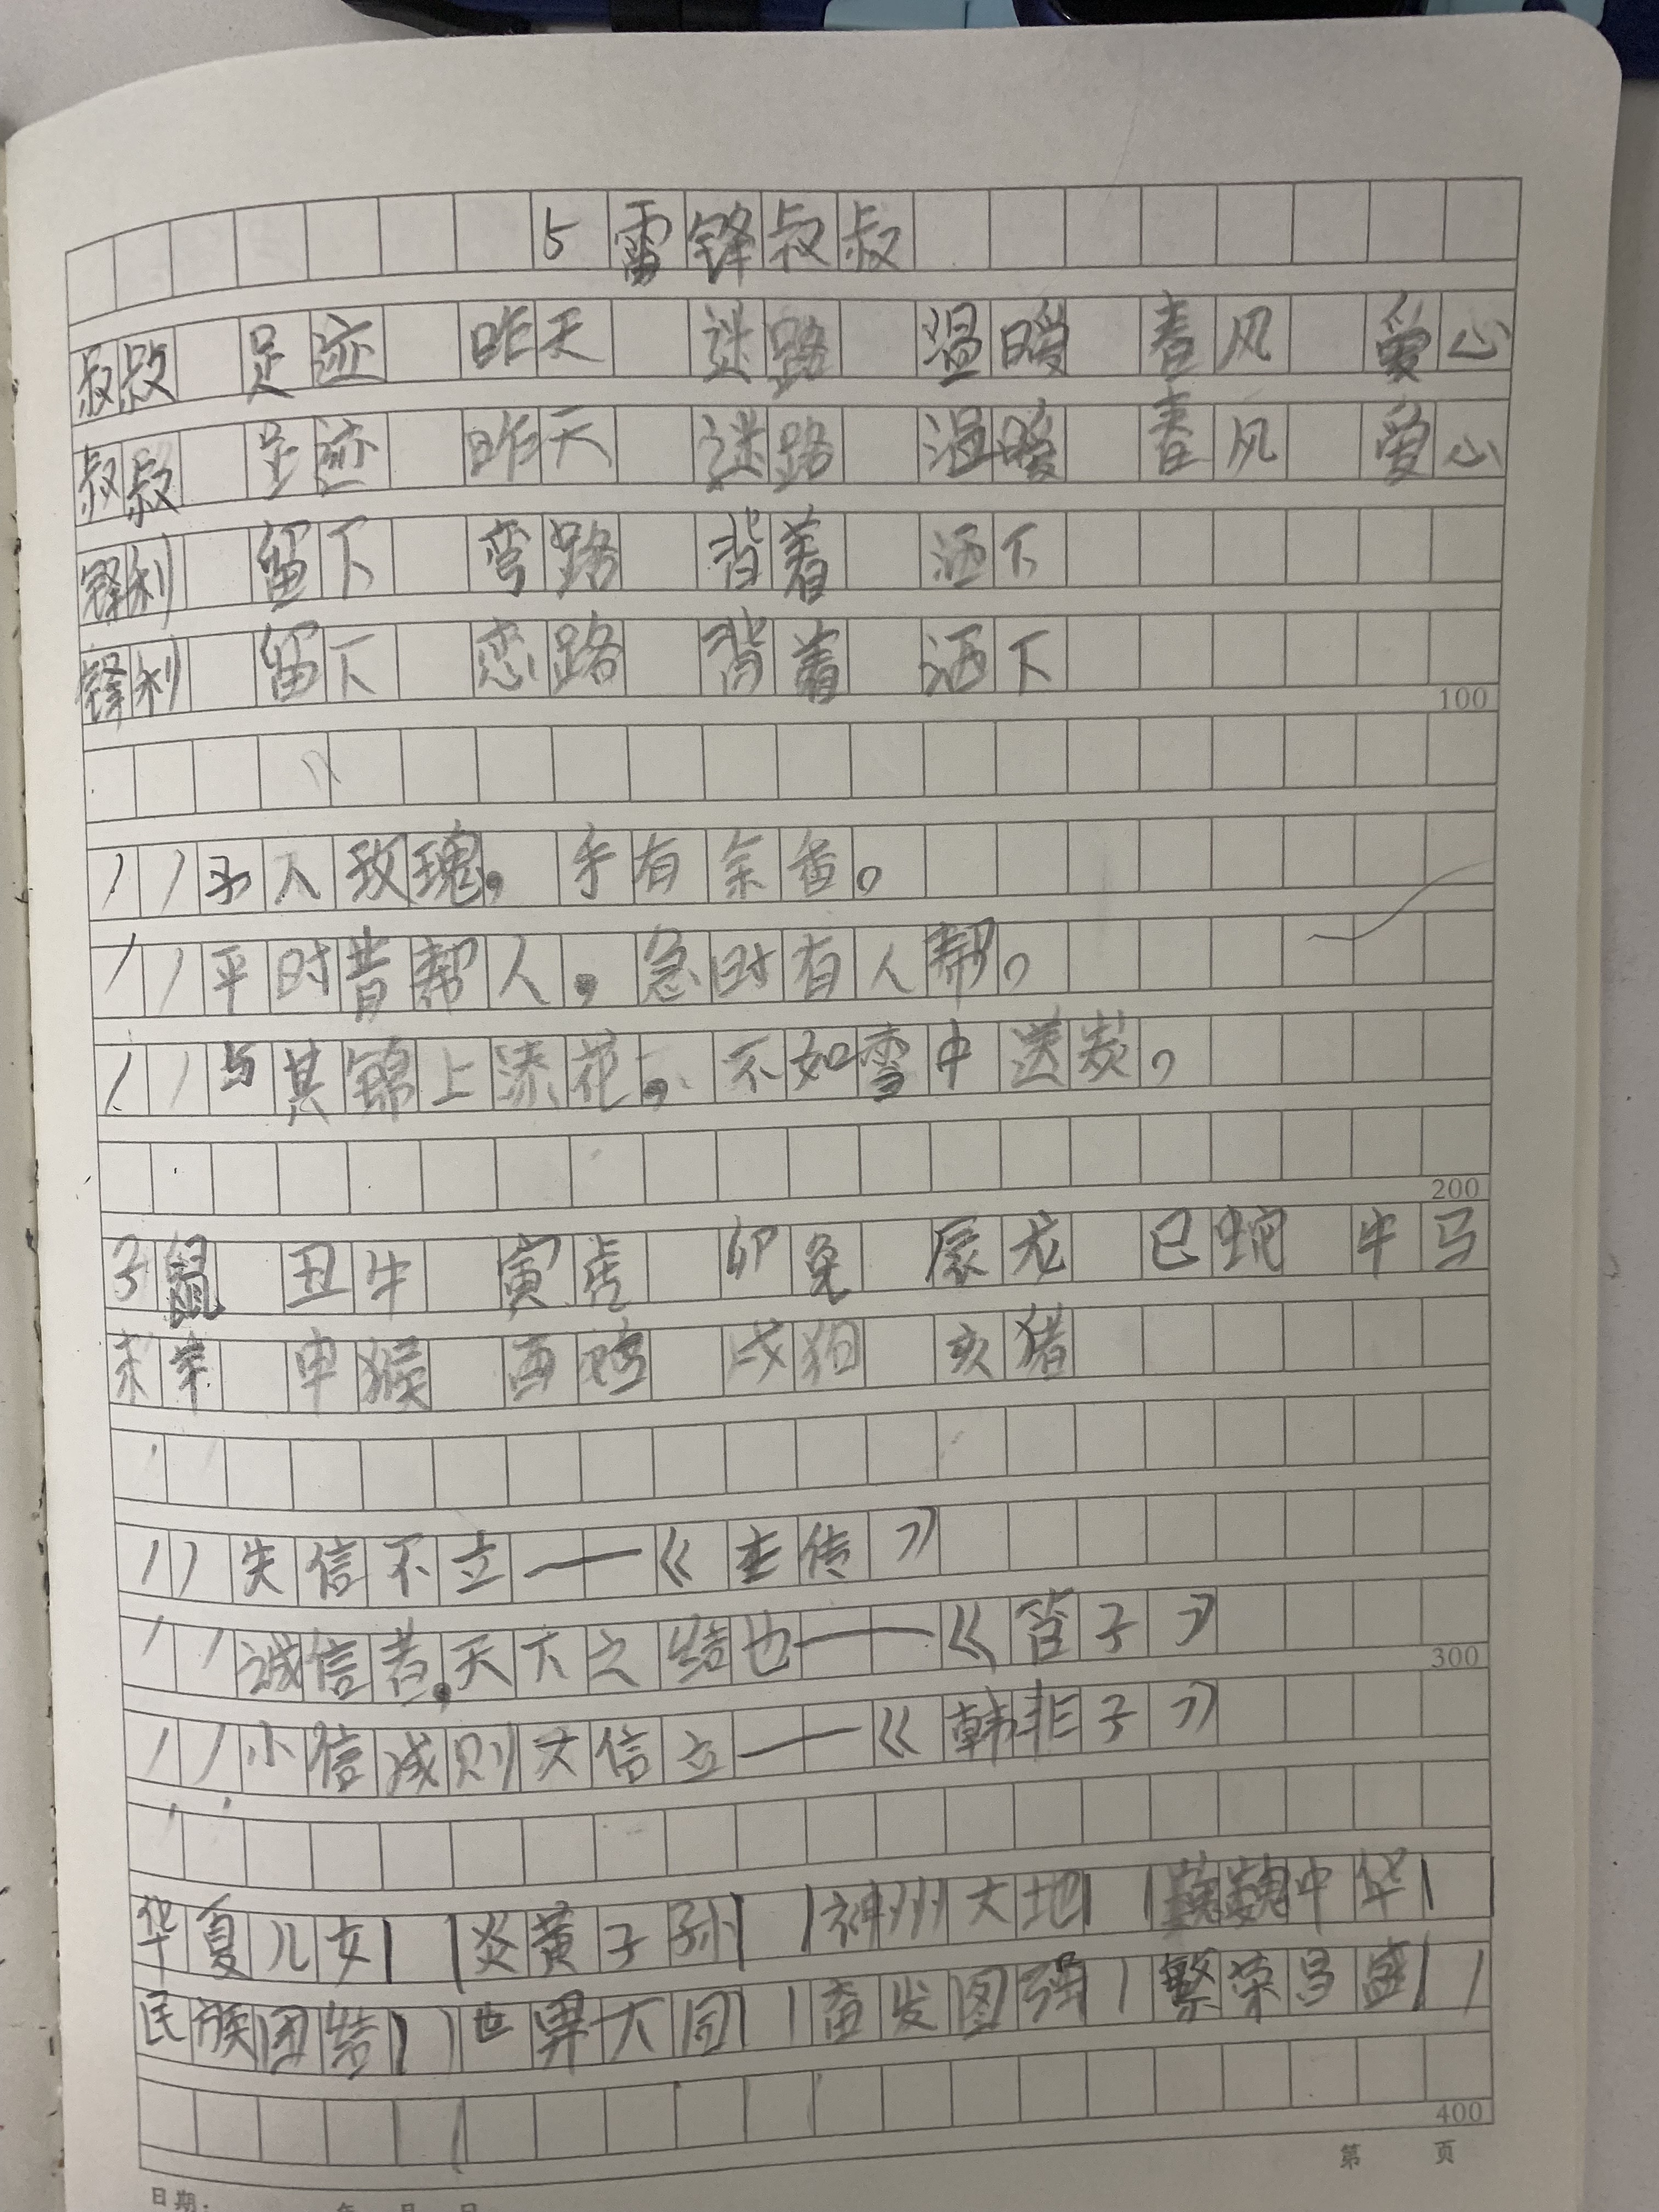 5 雷锋叔叔
叔叔 足迹 昨天 迷路 温暖 春风 爱心
叔叔 足迹 昨天 迷路 温暖 春风 爱心
锋利 留下 弯路 背着 洒下
锋利 留下 恋路 背着 洒下
100
予人玫瑰,手有余香。
平时肯帮人,急时有人帮。
与其锦上添花,不如雪中送炭。
200
子鼠 丑牛 寅虎 卯兔 辰龙 巳蛇 牛马
未羊 申猴 酉鸡 戌狗 亥猪
失信不立——《左传》
诚信者,天下之结也——《管子》
300
小信成则大信立——《韩非子》
华夏儿女 炎黄子孙 神州大地 巍巍中华
民族团结 世界大同 奋发图强 繁荣昌盛
400
第 页
日期: 年 月 日